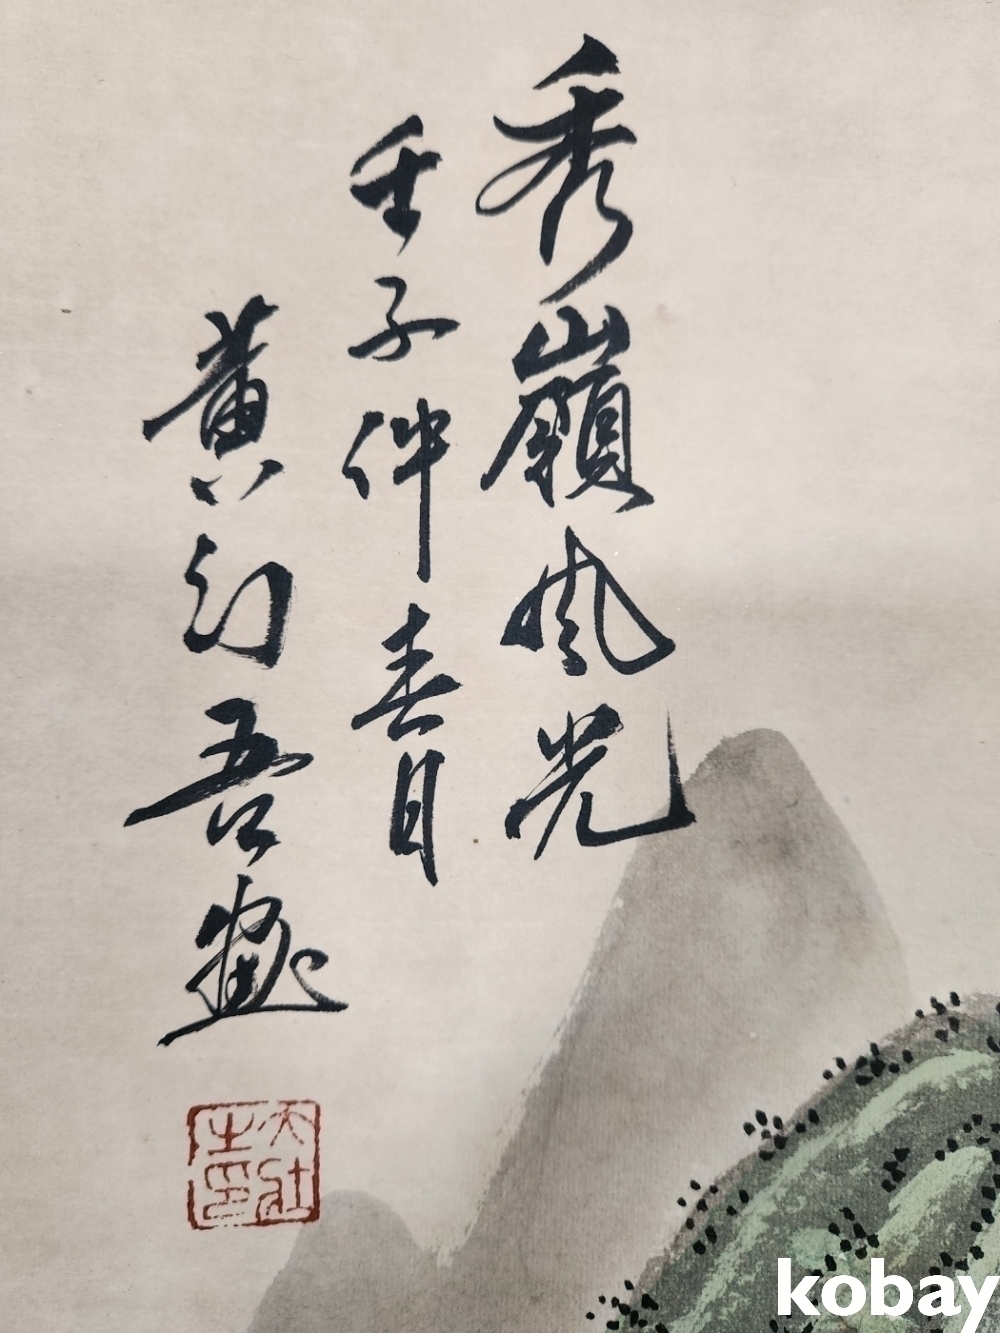 秀嶺風光
壬子仲春月
黄幻吾畫
kobay